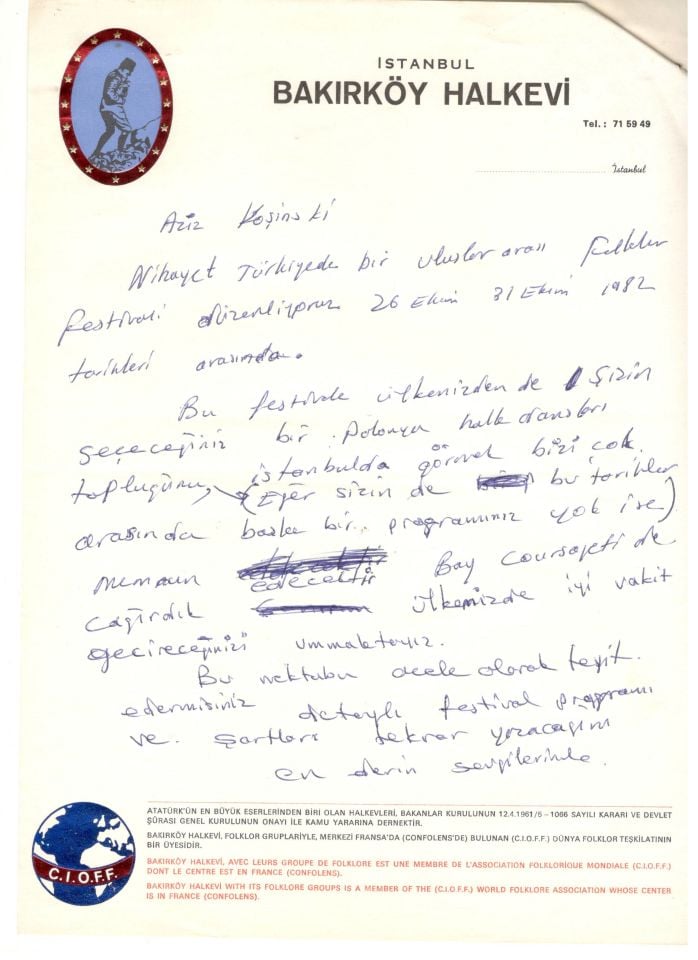 İSTANBUL
BAKIRKÖY HALKEVİ
Tel.: 71 59 49
İstanbul
Aziz Koşinski
Nihayet Türkiyede bir uluslar arası Folklor
festivali düzenliyoruz 26 Ekim 31 Ekim 1982
tarihleri arasında.
Bu festivale ülkenizden de Sizin
seçeceğiniz bir Polonya halk dansları
topluğunu, istanbulda görmek bizi çok
(Eğer sizin de bu tarihler
arasında başka bir programınız yok ise)
memnun edecektir Bay Coursageti de
çağırdık ülkemizde iyi vakit
geçireceğinizi ummaktayız.
Bu mektubu acele olarak teyit
edermisiniz detaylı festival programı
ve şartları tekrar yazacağım
en derin sevgilerimle.
C.I.O.F.F.
ATATÜRK'ÜN EN BÜYÜK ESERLERİNDEN BİRİ OLAN HALKEVLERİ, BAKANLAR KURULUNUN 12.4.1961/5 – 1066 SAYILI KARARI VE DEVLET
ŞÛRASI GENEL KURULUNUN ONAYI İLE KAMU YARARINA DERNEKTİR.
BAKIRKÖY HALKEVİ, FOLKLOR GRUPLARİYLE, MERKEZİ FRANSA'DA (CONFOLENS'DE) BULUNAN (C.I.O.F.F.) DÜNYA FOLKLOR TEŞKİLATININ
BİR ÜYESİDİR.
BAKIRKÖY HALKEVİ, AVEC LEURS GROUPE DE FOLKLORE EST UNE MEMBRE DE L'ASSOCIATION FOLKLORİQUE MONDIALE (C.I.O.F.F.)
DONT LE CENTRE EST EN FRANCE (CONFOLENS).
BAKIRKÖY HALKEVİ WITH ITS FOLKLORE GROUPS IS A MEMBER OF THE (C.I.O.F.F.) WORLD FOLKLORE ASSOCIATION WHOSE CENTER
IS IN FRANCE (CONFOLENS).